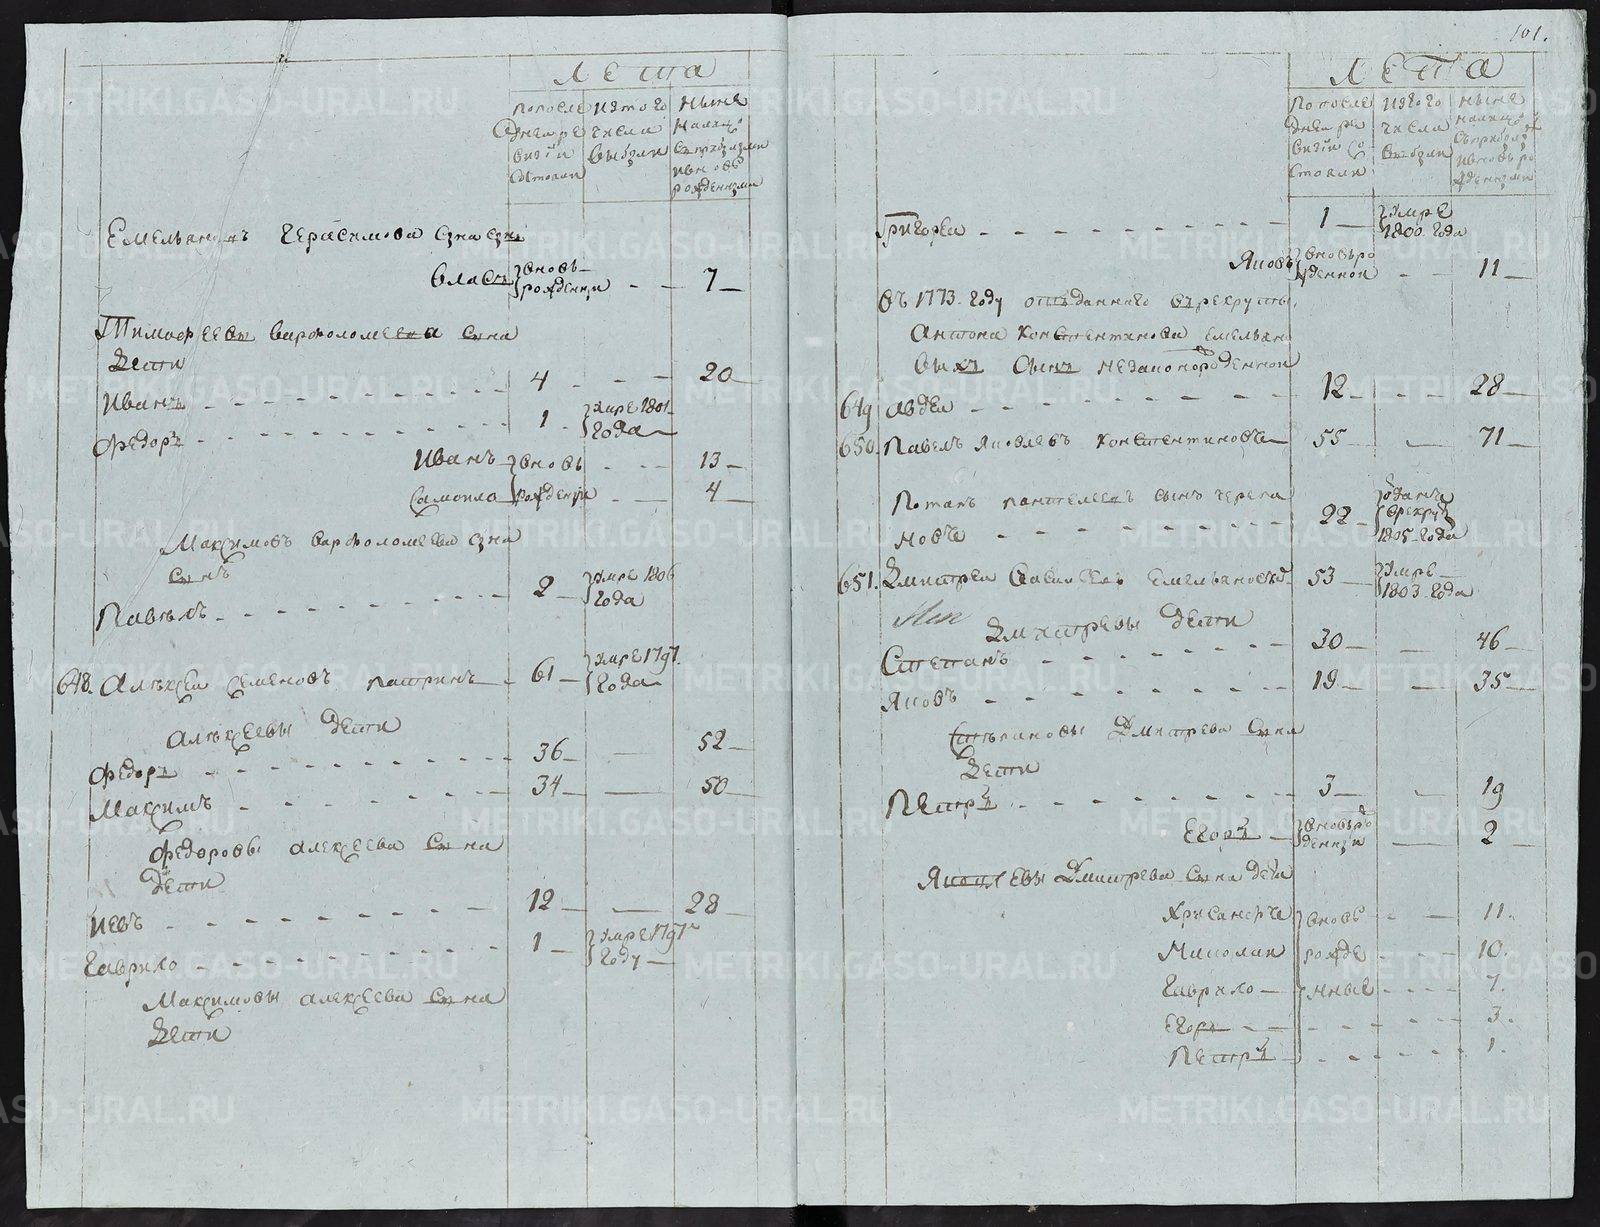 лета
по после
дней ре
визiи
состояли
из того
числа
выбыли
ныне
налицо
с прибылыми
и вновь
рожденными
Емельяновъ Герасимова сына сынъ
Власъ вновь
рожденны 7
Тимофеевы варфоломеева сына
Дети
Иванъ 4 20
Федоръ 1 умре 1801
года
Иванъ вновь 13
Самоило рожденны 4
Максимовъ варфоломеева сына
сынъ
Павелъ 2 умре 1806
года
648. Алексей семеновъ патринъ 61 умре 1797
года
Алексеевы дети
Федоръ 36 52
Максимъ 34 50
Федоровы алексеева сына
дети
Иевъ 12 28
Гаврило 1 умре 1797
году
Максимовы алексеева сына
Дети
101.
лета
по после
дней ре
визiи со
стояли
из того
числа
выбыли
ныне
налицо
с прибылы
и вновь ро
жденными
Григорей 1 умре
1800 года
Яковъ вновь ро
жденной 11
въ 1773 году отъданнаго въ рекруты
Антона Констентинова емельяно
выхъ сынъ незаконорожденной
649 Авдей 12 28
650. Павелъ Яковлевъ Констентиновъ 55 71
Потапъ пантелеевъ сынъ черепа
новъ 22 одданъ
в рекруты
1805 года
651. Дмитрей Савинъ Емельяновъ 53 умре
1803 года
Дмитревы дети
Степанъ 30 46
Яковъ 19 35
Степановы Дмитрева сына
Дети
Петръ 3 19
Егоръ вновь ро
жденны 2
Яковлевы Дмитрева сына дети
Хрисанфъ вновь 11.
Миколаи рожде 10.
Гаврило нные 7.
Егоръ 3.
Петръ 1.
METRIKI.GASO-URAL.RU